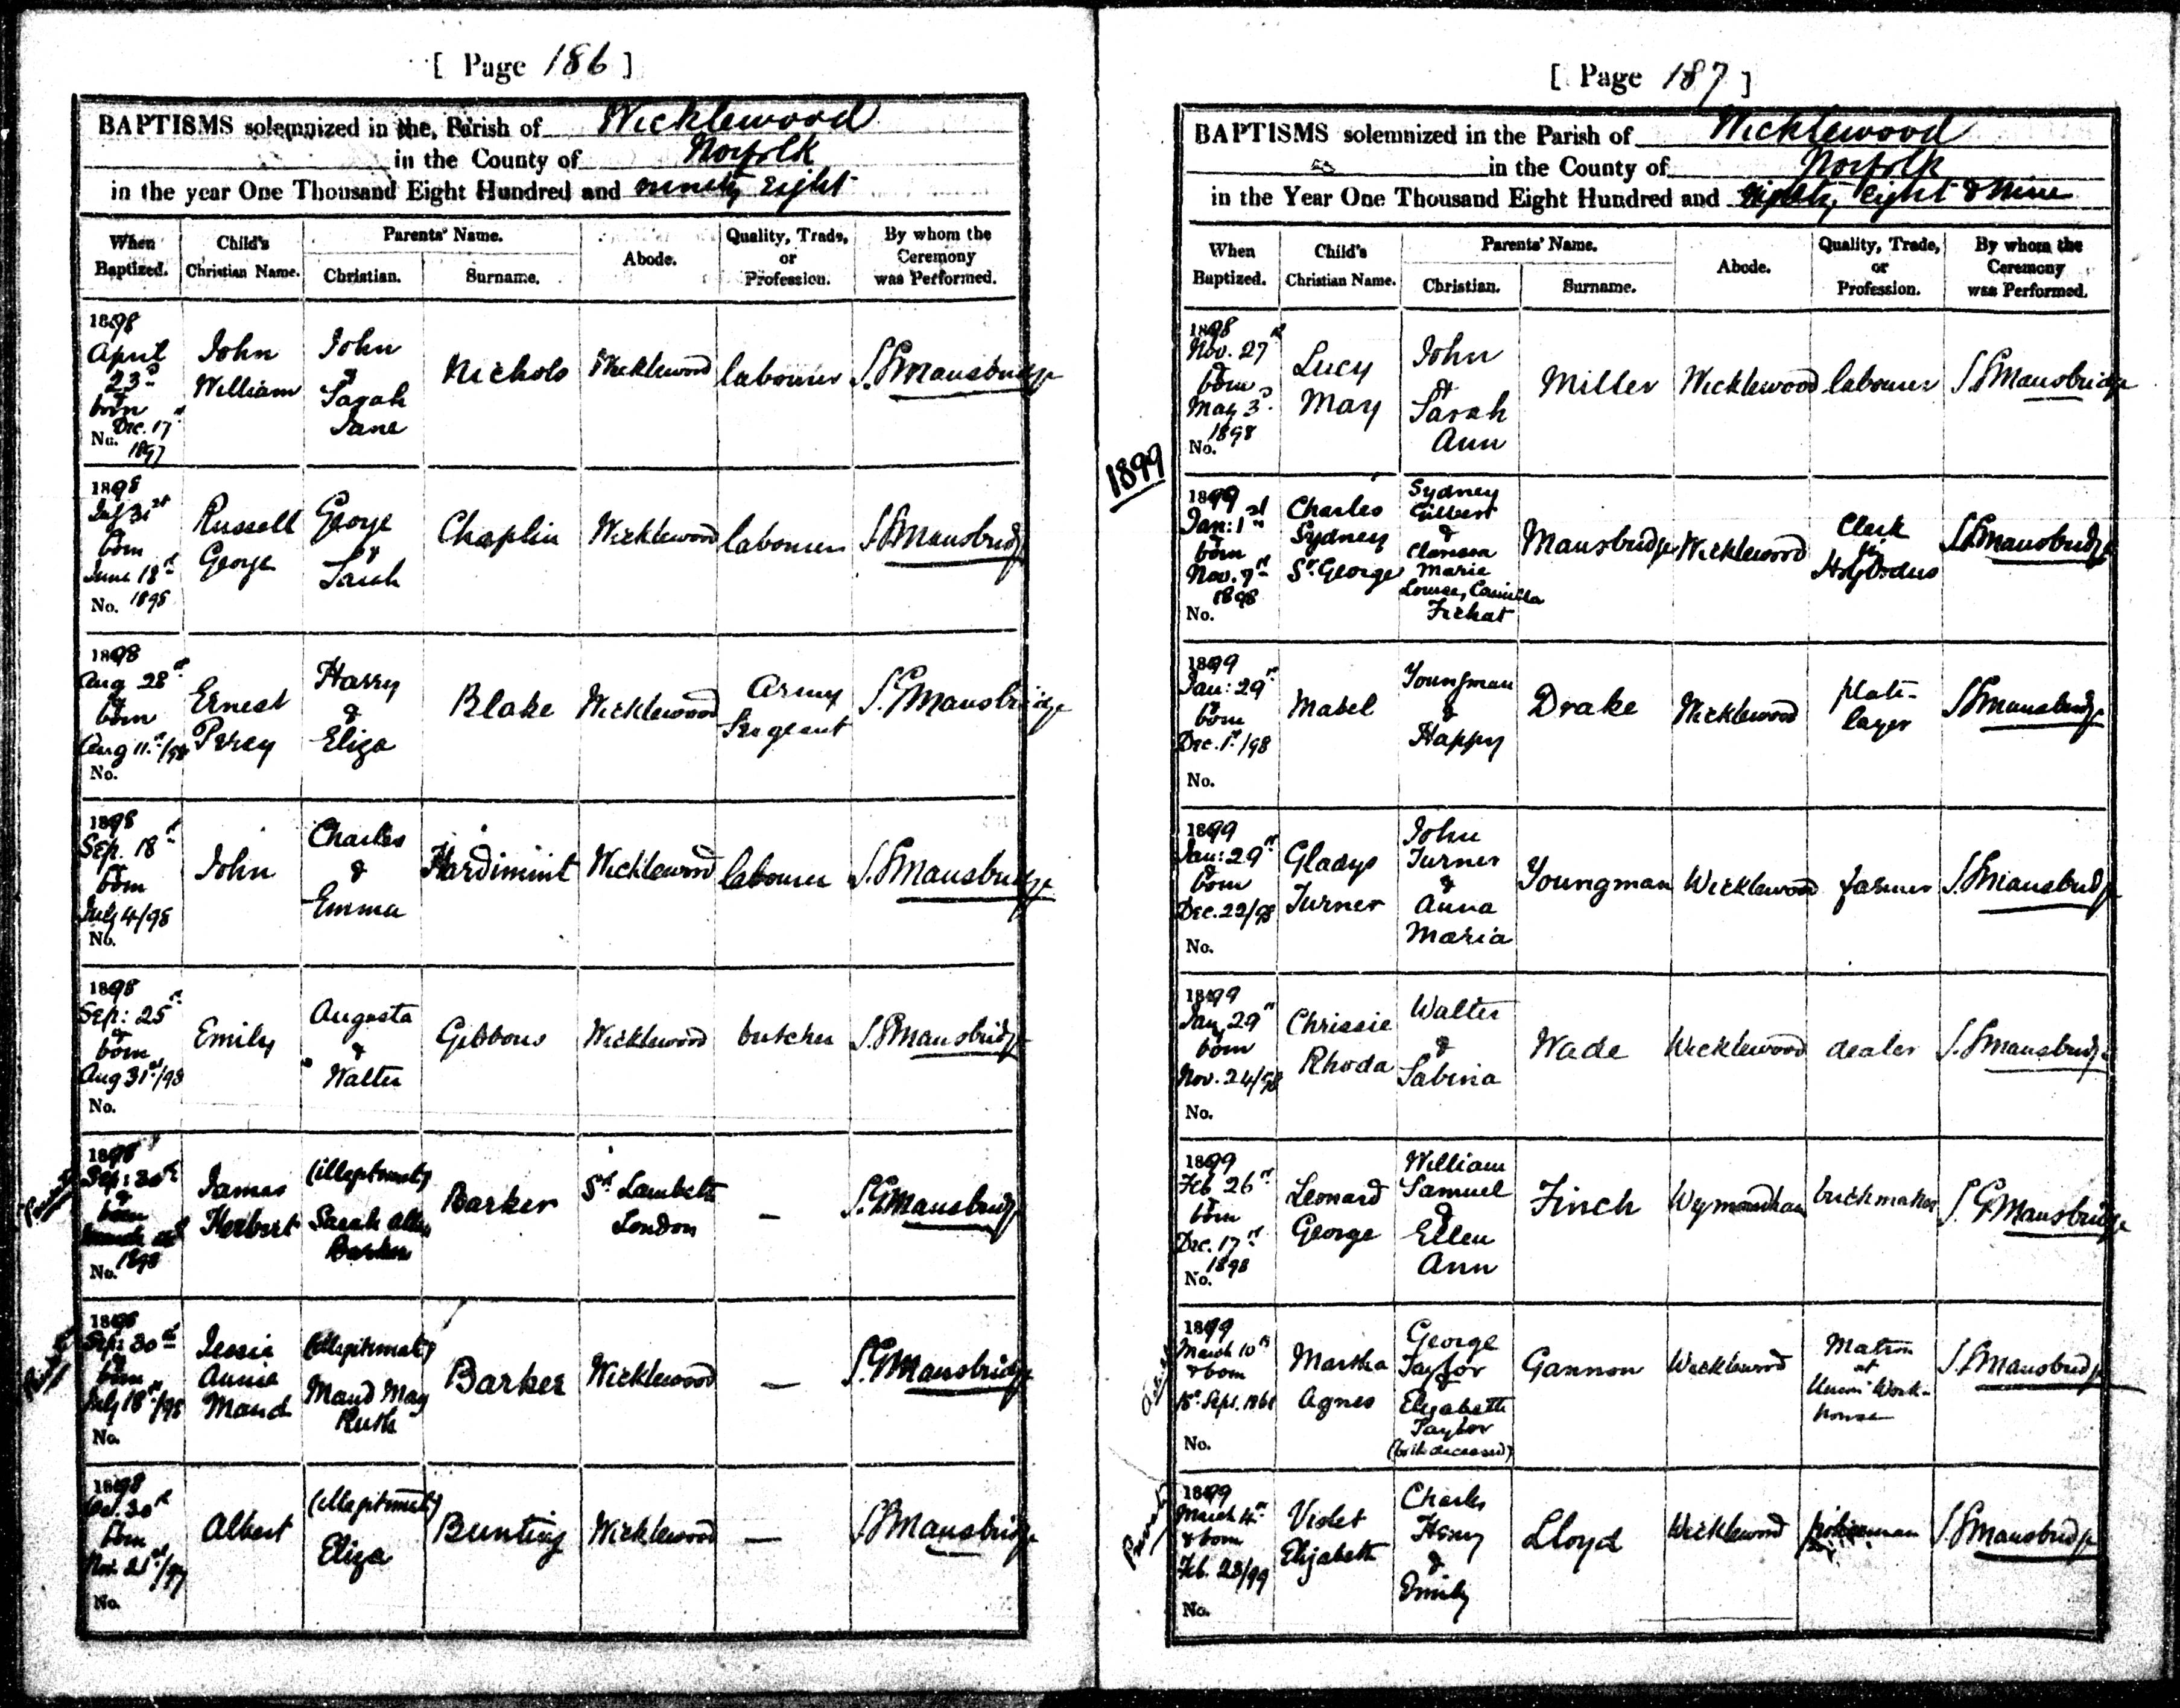 [ Page 186 ]
BAPTISMS solemnized in the Parish of Wicklewood
in the County of Norfolk
in the year One Thousand Eight Hundred and ninety Eight
When Baptized. Child's Christian Name. Parents' Name. Christian. Surname. Abode. Quality, Trade, or Profession. By whom the Ceremony was Performed.
1898
April
23d
&
born
Dec. 17th
1897
No.
John
William
John
&
Sarah
Jane
Nichols
Wicklewood
labourer
S. G. Mansbridge
1898
July 31st
&
born
June 18th
1898
No.
Russell
George
George
&
Sarah
Chaplin
Wicklewood
labourer
S. G. Mansbridge
1898
Aug 28th
&
born
Aug 11th/98
No.
Ernest
Percy
Harry
&
Eliza
Blake
Wicklewood
Army
Sergeant
S. G. Mansbridge
1898
Sep. 18th
&
born
July 4/98
No.
John
Charles
&
Emma
Hardimint
Wicklewood
labourer
S. G. Mansbridge
1898
Sep: 25th
&
born
Aug 31st/98
No.
Emily
Augusta
&
Walter
Gibbons
Wicklewood
butcher
S. G. Mansbridge
1898
Sep: 30th
&
born
March
1898
No.
James
Herbert
(illegitimate)
Sarah Allen
Barker
Barker
Sth Lambeth
London
—
S. G. Mansbridge
1898
Sep: 30th
&
born
July 18th/98
No.
Jessie
Annie
Maud
(illegitimate)
Maud May
Ruth
Barker
Wicklewood
—
S. G. Mansbridge
1898
Oct. 30th
&
born
Nov. 21st/97
No.
Albert
(illegitimate)
Eliza
Bunting
Wicklewood
—
S. G. Mansbridge
[ Page 187 ]
BAPTISMS solemnized in the Parish of Wicklewood
in the County of Norfolk
in the Year One Thousand Eight Hundred and Ninety Eight & Nine
When Baptized. Child's Christian Name. Parents' Name. Christian. Surname. Abode. Quality, Trade, or Profession. By whom the Ceremony was Performed.
1898
Nov. 27th
&
born
May 3d
1898
No.
Lucy
May
John
&
Sarah
Ann
Miller
Wicklewood
labourer
S. G. Mansbridge
1899
1899
Jan: 1st
&
born
Nov. 7th
1898
No.
Charles
Sydney
St. George
Sydney
Gilbert
&
Clarissa
Marie
Louise, Camilla
Fichat
Mansbridge
Wicklewood
Clerk
in
Holy Orders
S. G. Mansbridge
1899
Jan: 29th
&
born
Dec. 1st/98
No.
Mabel
Youngman
&
Happy
Drake
Wicklewood
plate-
layer
S. G. Mansbridge
1899
Jan: 29th
&
born
Dec. 22/98
No.
Gladys
Turner
John
Turner
&
Anna
Maria
Youngman
Wicklewood
farmer
S. G. Mansbridge
1899
Jan 29th
&
born
Nov. 24/98
No.
Chrissie
Rhoda
Walter
&
Sabina
Wade
Wicklewood
dealer
S. G. Mansbridge
1899
Feb 26th
&
born
Dec. 17th
1898
No.
Leonard
George
William
Samuel
&
Ellen
Ann
Finch
Wymondham
brickmaker
S. G. Mansbridge
1899
March 10th
& born
Sept.
No.
Martha
Agnes
George
Taylor
&
Elizabeth
Taylor
(both deceased)
Gannon
Wicklewood
Matron
at
Union Work-
house
S. G. Mansbridge
1899
March 4th
& born
Feb. 28/99
No.
Violet
Elizabeth
Charles
Henry
&
Emily
Lloyd
Wicklewood
policeman
S. G. Mansbridge